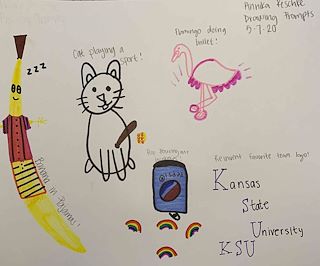 Annika Peschke
Drawing Prompts
5-7-20
Flamingo doing
ballet!
Cat playing a
sport!
zzz
Banana in Pajamas!
Reinvent favorite team logo!
Kansas
State
University
KSU